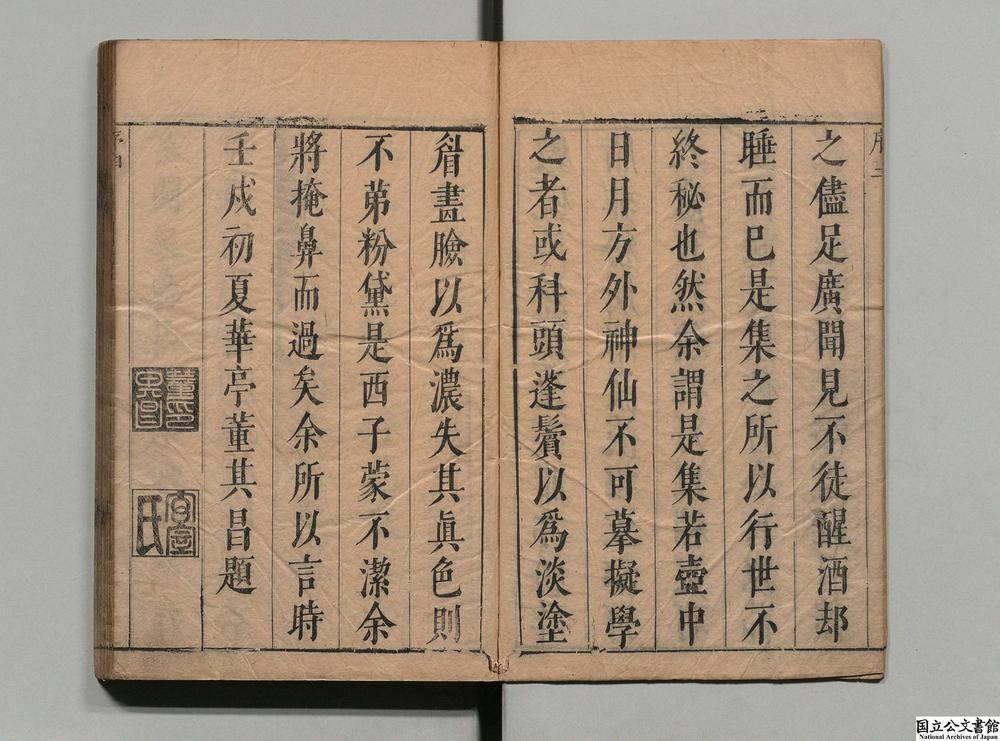 之儘足廣聞見不徒醒酒却
睡而已是集之所以行世不
終秘也然余謂是集若壺中
日月方外神仙不可摹擬學
之者或科頭蓬鬢以爲淡塗
眉畫臉以爲濃失其眞色則
不苐粉黛是西子蒙不潔余
將掩鼻而過矣余所以言時
壬戌初夏華亭董其昌題
董印其昌
氏
国立公文書館
National Archives of Japan